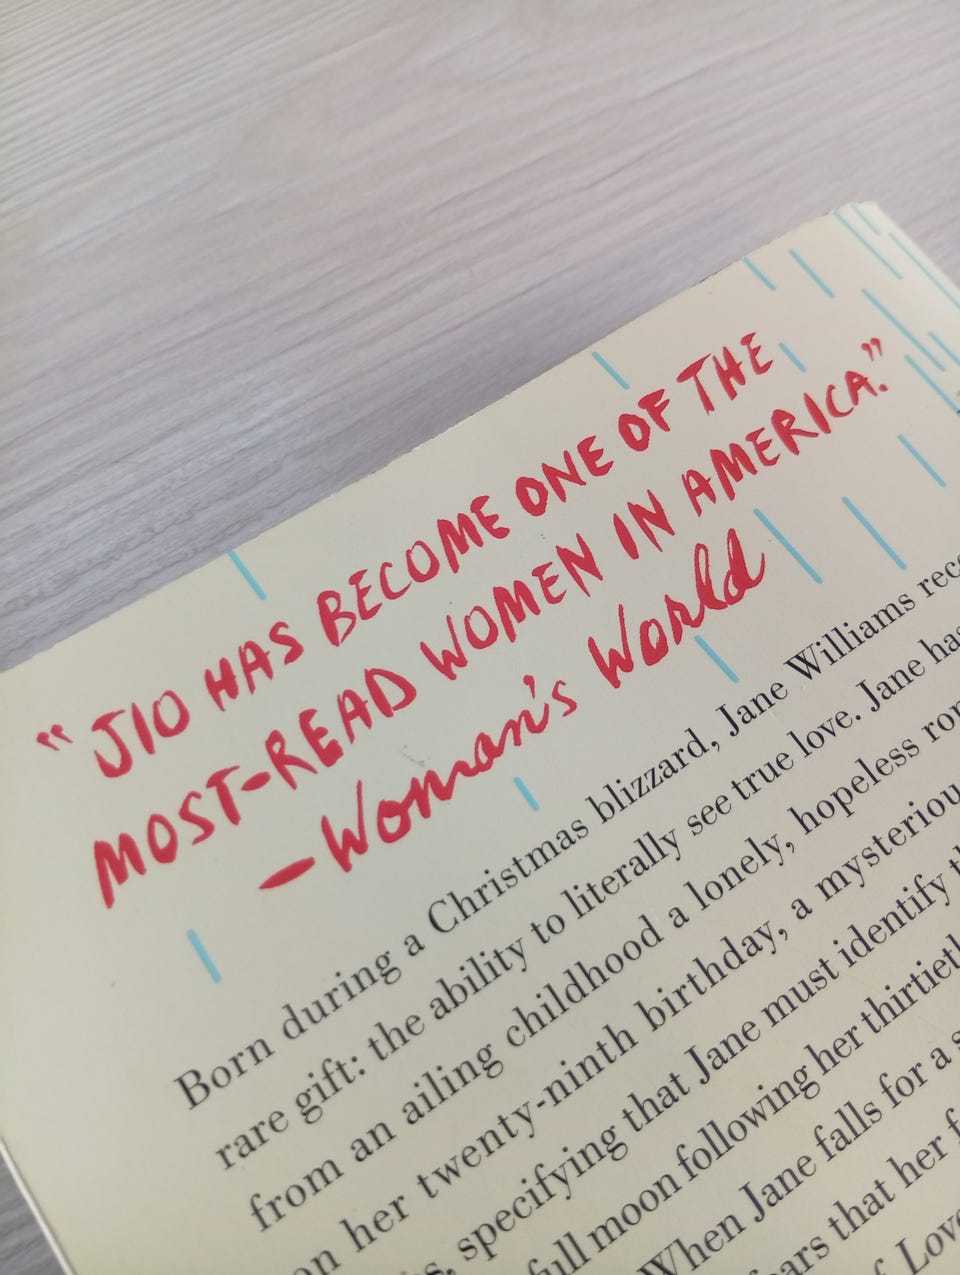 “JIO HAS BECOME ONE OF THE
MOST-READ WOMEN IN AMERICA.”
—Woman's World
Born during a Christmas blizzard, Jane Williams
rare gift: the ability to literally see true love. Jane has
from an ailing childhood a lonely, hopeless
on her twenty-ninth birthday, a
specifying that Jane must identify
full moon following her
When Jane falls for a
that her